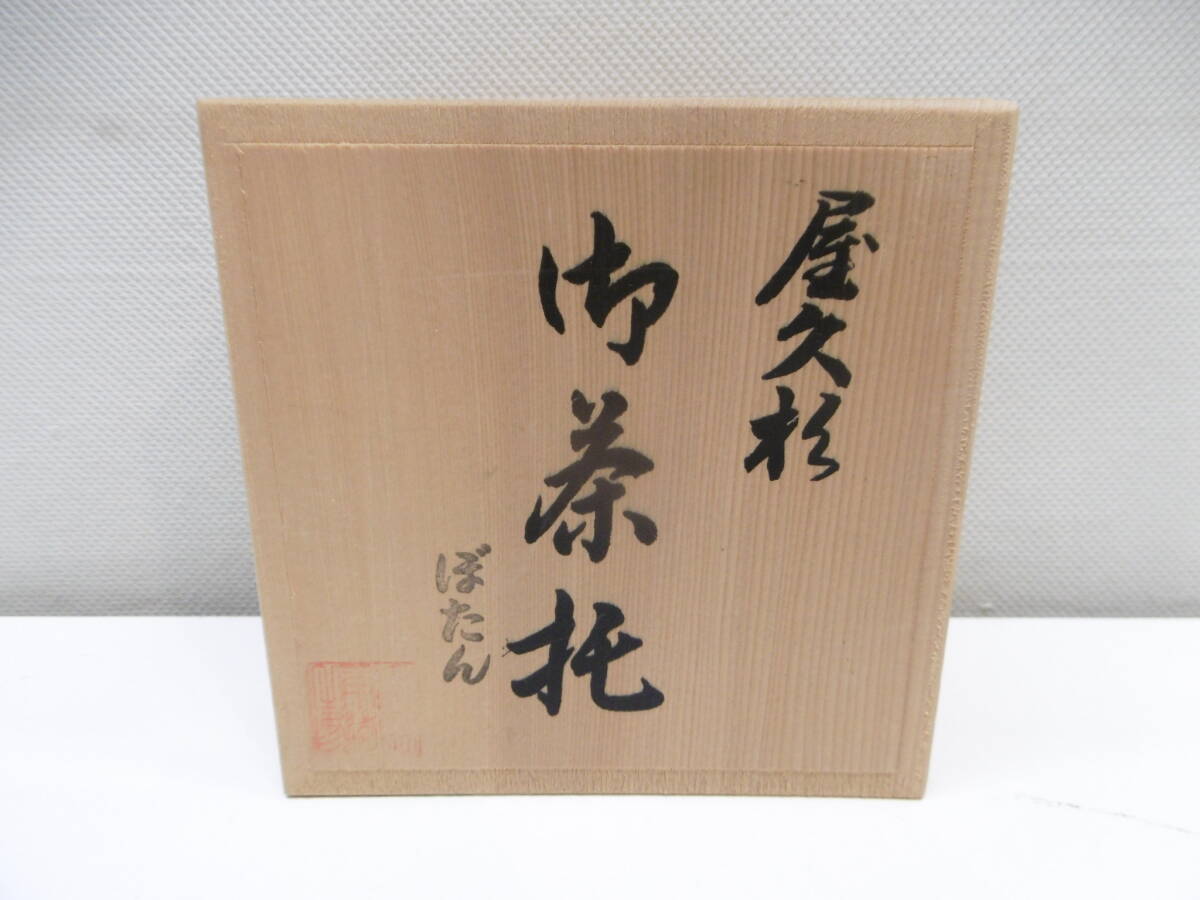 屋久杉
御茶托
ぼたん